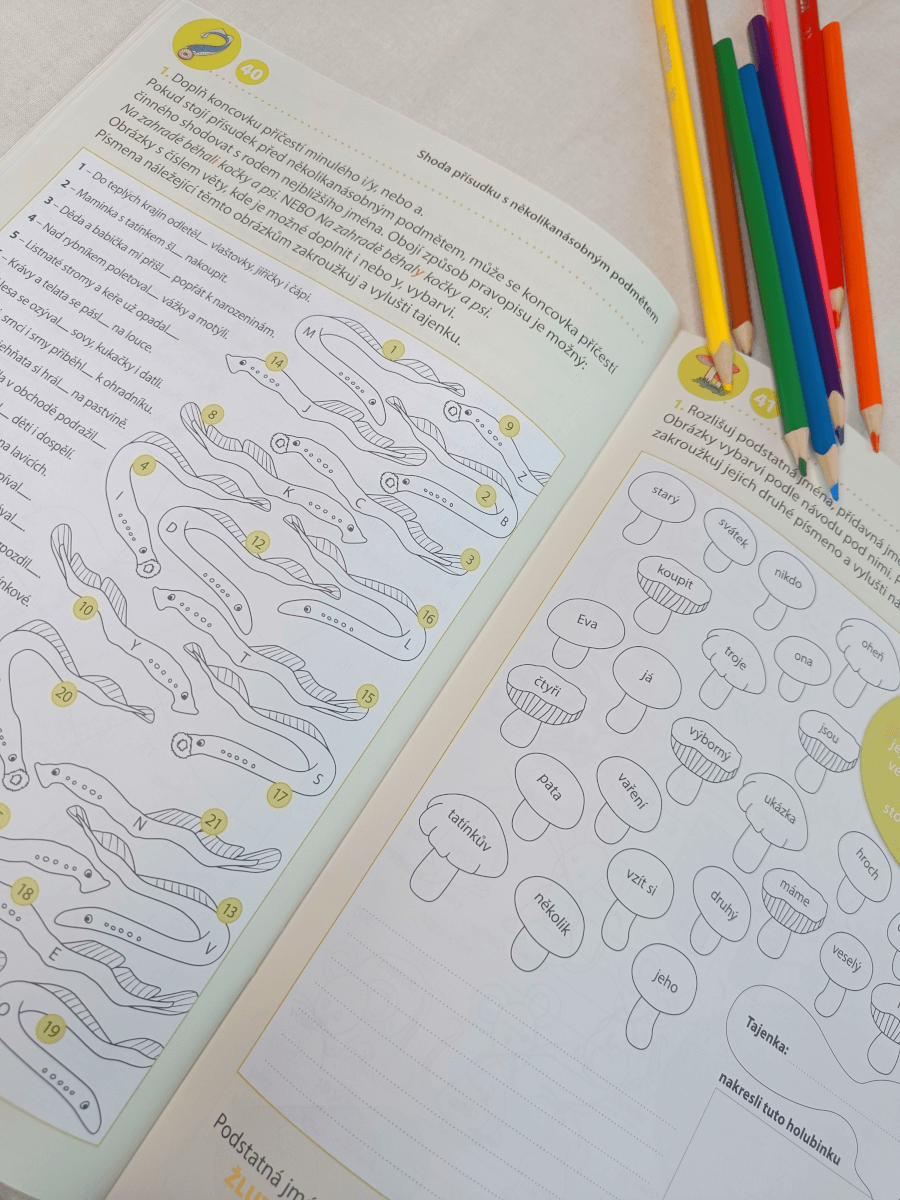 40
Shoda přísudku s několikanásobným podmětem
1. Doplň koncovku příčestí minulého i/y, nebo a.
Pokud stojí přísudek před několikanásobným podmětem, může se koncovka příčestí
činného shodovat s rodem nejbližšího jména. Obojí způsob pravopisu je možný:
Na zahradě běhali kočky a psi. NEBO Na zahradě běhaly kočky a psi.
Obrázky s číslem věty, kde je možné doplnit i nebo y, vybarvi.
Písmena náležející těmto obrázkům zakroužkuj a vylušti tajenku.
1 – Do teplých krajin odletěl__ vlaštovky, jiřičky i čápi.
2 – Maminka s tatínkem šl__ nakoupit.
3 – Děda a babička mi přišl__ popřát k narozeninám.
4 – Nad rybníkem poletoval__ vážky a motýli.
5 – Listnaté stromy a keře už opadal__
– Krávy a telata se pásl__ na louce.
lesa se ozýval__ sovy, kukačky i datli.
srnci i srny přiběhl__ k ohradníku.
hříňata si hrál__ na pastvině.
v obchodě podražil__
__ děti i dospělí.
na lavicích.
M
1
14
J
9
Z
8
K
C
2
B
3
4
I
D
12
16
L
10
Y
T
15
20
17
S
N
21
13
V
18
E
O
19
41
1. Rozlišuj podstatná jména, přídavná
Obrázky vybarvi podle návodu pod nimi.
zakroužkuj jejich druhé písmeno a vylušti
starý
svátek
nikdo
koupit
Eva
troje
ona
oheň
já
čtyři
výborný
jsou
pata
vaření
ukázka
tatínkův
vzít si
hroch
druhý
máme
několik
veselý
jeho
Tajenka:
nakresli tuto holubinku
Podstatná